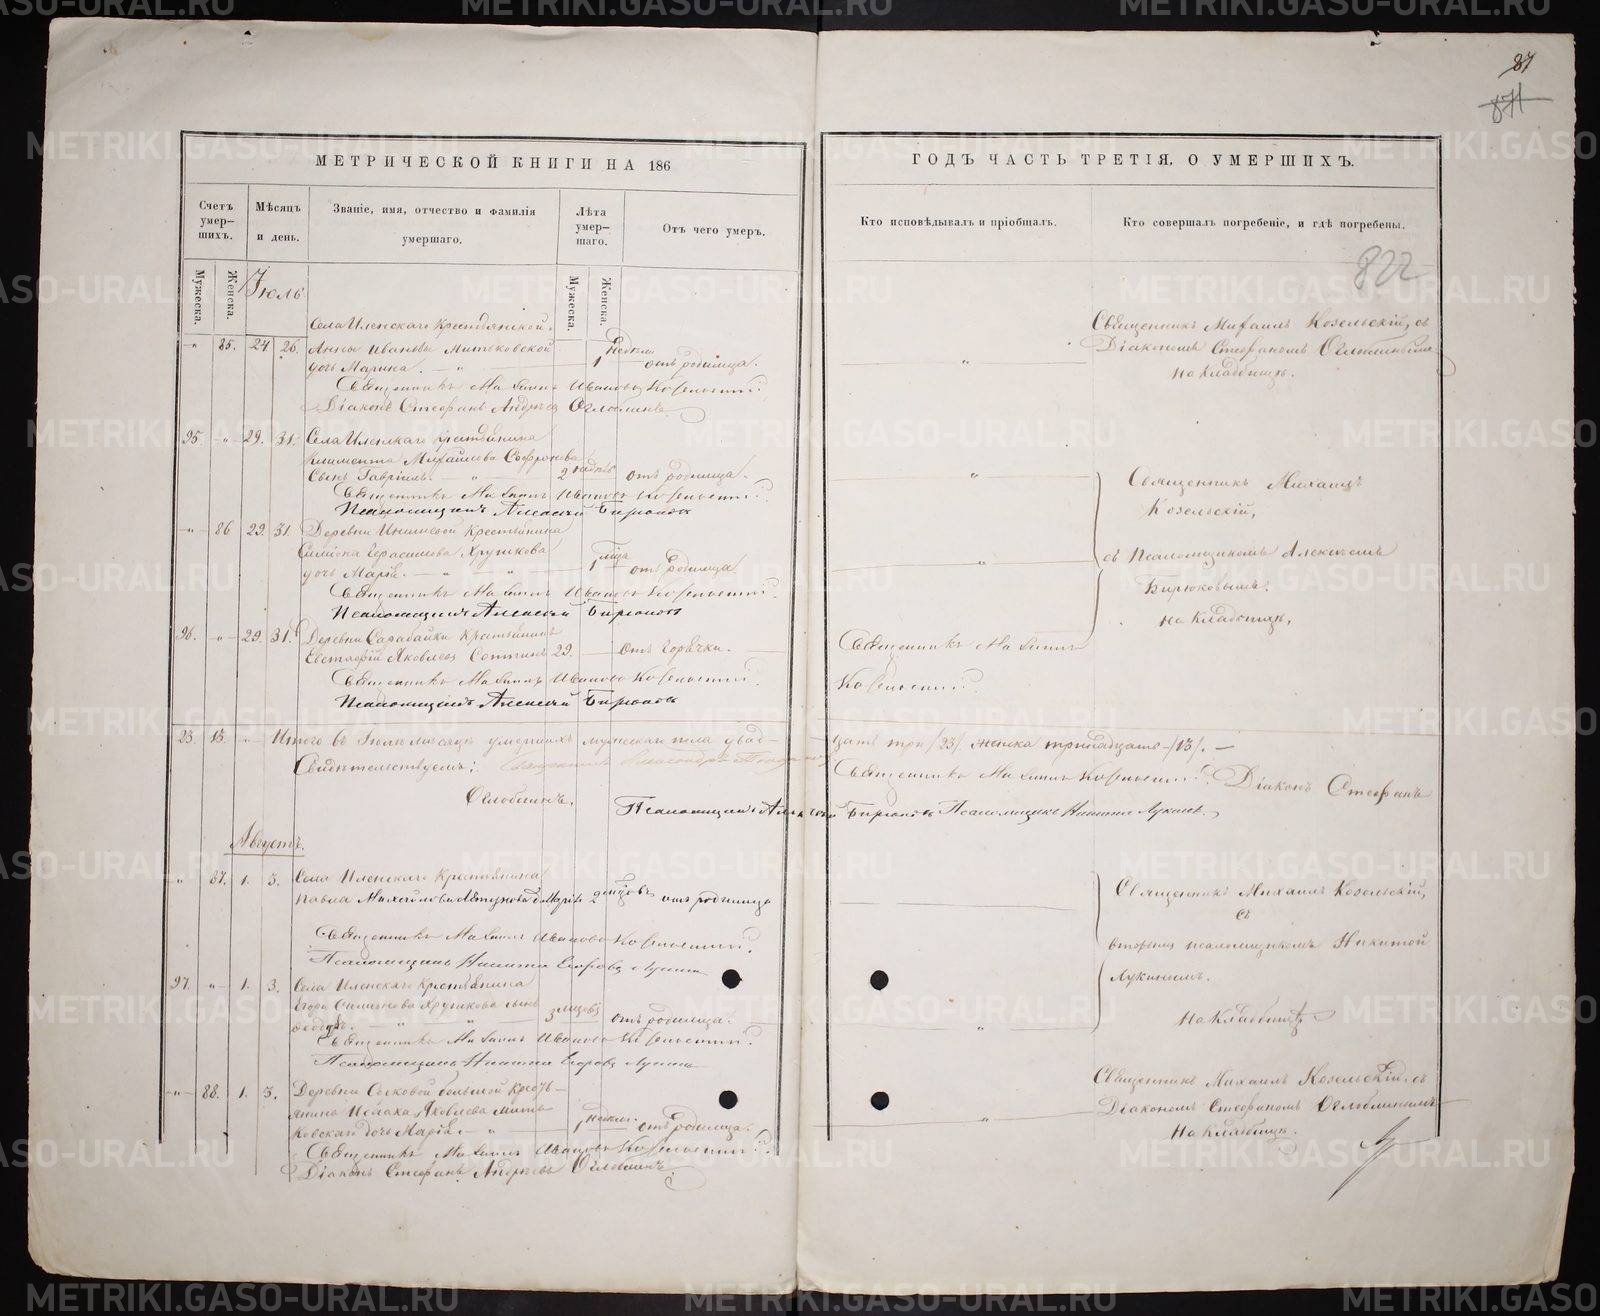 87
871
МЕТРИЧЕСКОЙ КНИГИ НА 186
ГОДЪ ЧАСТЬ ТРЕТІЯ, О УМЕРШИХЪ.
Счетъ умер-шихъ.
Мѣсяцъ и день.
Званіе, имя, отчество и фамилія умершаго.
Лѣта умер-шаго.
Отъ чего умеръ.
Кто исповѣдывалъ и пріобщалъ.
Кто совершалъ погребеніе, и гдѣ погребены.
822
Мужеска.
Женска.
Іюль
Мужеска.
Женска.
Села Иленскаго Крестьянской
85. 24 26. Анны Ивановы Митьковской
дочь Марина. 1 недели отъ родимца.
Священникъ Михаилъ Козельскій, съ
Діакономъ Стефаномъ Оглоблинымъ
на кладбищѣ.
Священникъ Михаилъ Ивановъ Козельскій
Діаконъ Стефанъ Андрѣевъ Оглоблинъ
95. 29. 31. Села Иленскаго Крестьянина
Климента Михайлова Софронова
Сынъ Гавріилъ. 2 недѣль отъ родимца.
Священникъ Михаилъ Ивановъ Козельскій
Псаломщикъ Алексѣй Бирюковъ
86 29. 31. Деревни Крестьянина
Симеона Герасимова Хрущкова
дочь Марія. 1 мѣсца отъ родимца
Священникъ Михаилъ Ивановъ Козельскій
Псаломщикъ Алексѣй Бирюковъ
Священникъ Михаилъ
Козельскій,
съ Псаломщикомъ Алексѣемъ
Бирюковымъ.
на кладбищѣ,
96. 29. 31. Деревни Сарабайки Крестьянинъ
Евстафій Яковлевъ 29. отъ горячки.
Священникъ Михаилъ
Козельскій
Священникъ Михаилъ Ивановъ Козельскій
Псаломщикъ Алексѣй Бирюковъ
23. 13. Итого въ Іюлѣ мѣсяцѣ умершихъ мужескаго пола двад-
цать три /23/ женска тринадцать /13/.
Свидѣтельствуемъ: Священникъ Александръ
Священникъ Михаилъ Козельскій Діаконъ Стефанъ
Оглоблинъ, Псаломщикъ Алексѣй Бирюковъ Псаломщикъ Никита Лукинъ.
Августъ.
87. 1. 3. Села Иленскаго Крестьянина
Павла Михайлова дочь Марія 2 мѣсцовъ отъ родимца
Священникъ Михаилъ Ивановъ Козельскій
Псаломщикъ Никита Егоровъ Лукинъ
Священникъ Михаилъ Козельскій,
съ
вторымъ псаломщикомъ Никитой
Лукинымъ.
на кладбищѣ
97. 1. 3. Села Иленскаго Крестьянина
Егора Симеонова Хрущкова сынъ
Ѳеодоръ. 3 мѣсцовъ отъ родимца.
Священникъ Михаилъ Ивановъ Козельскій
Псаломщикъ Никита Егоровъ Лукинъ
88. 1. 3. Деревни Сосковой большой Кресть-
янина Исаака Яковлева Мить-
ковскаго дочь Марія. 1 недели отъ родимца.
Священникъ Михаилъ Козельскій, съ
Діакономъ Стефаномъ Оглоблинымъ
на кладбищѣ.
Священникъ Михаилъ Ивановъ Козельскій
Діаконъ Стефанъ Андрѣевъ Оглоблинъ
METRIKI.GASO-URAL.RU